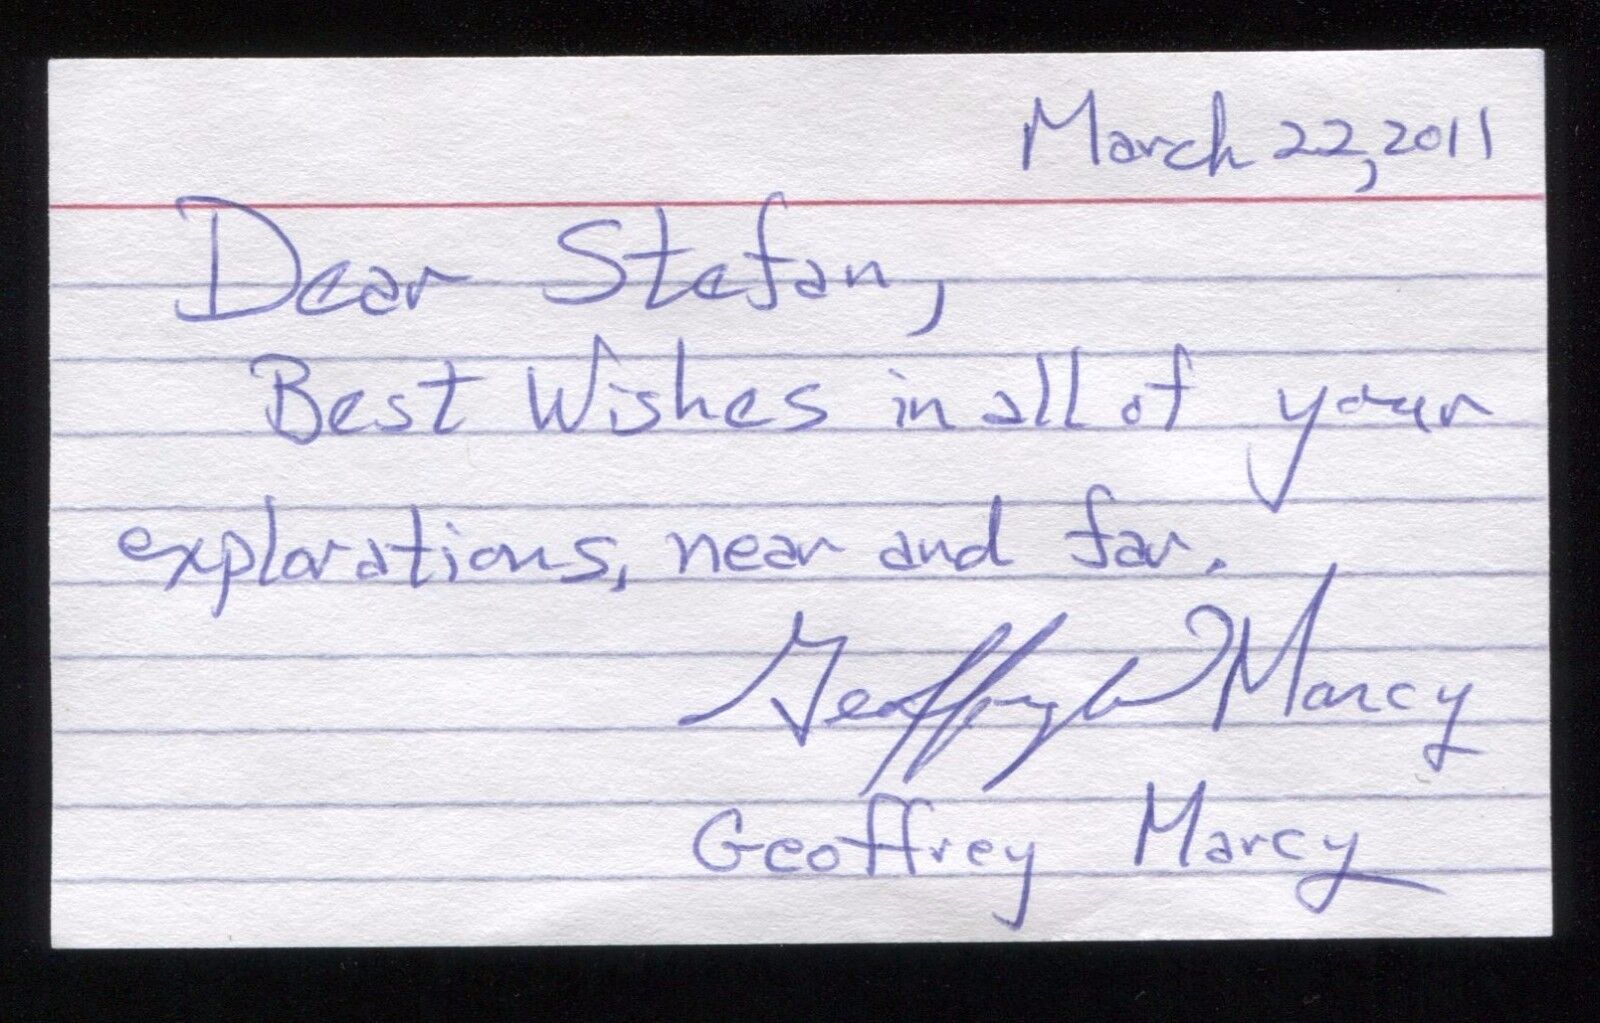 March 22, 2011
Dear Stefan,
Best Wishes in all of your
explorations, near and far.
Geoffrey W Marcy
Geoffrey Marcy